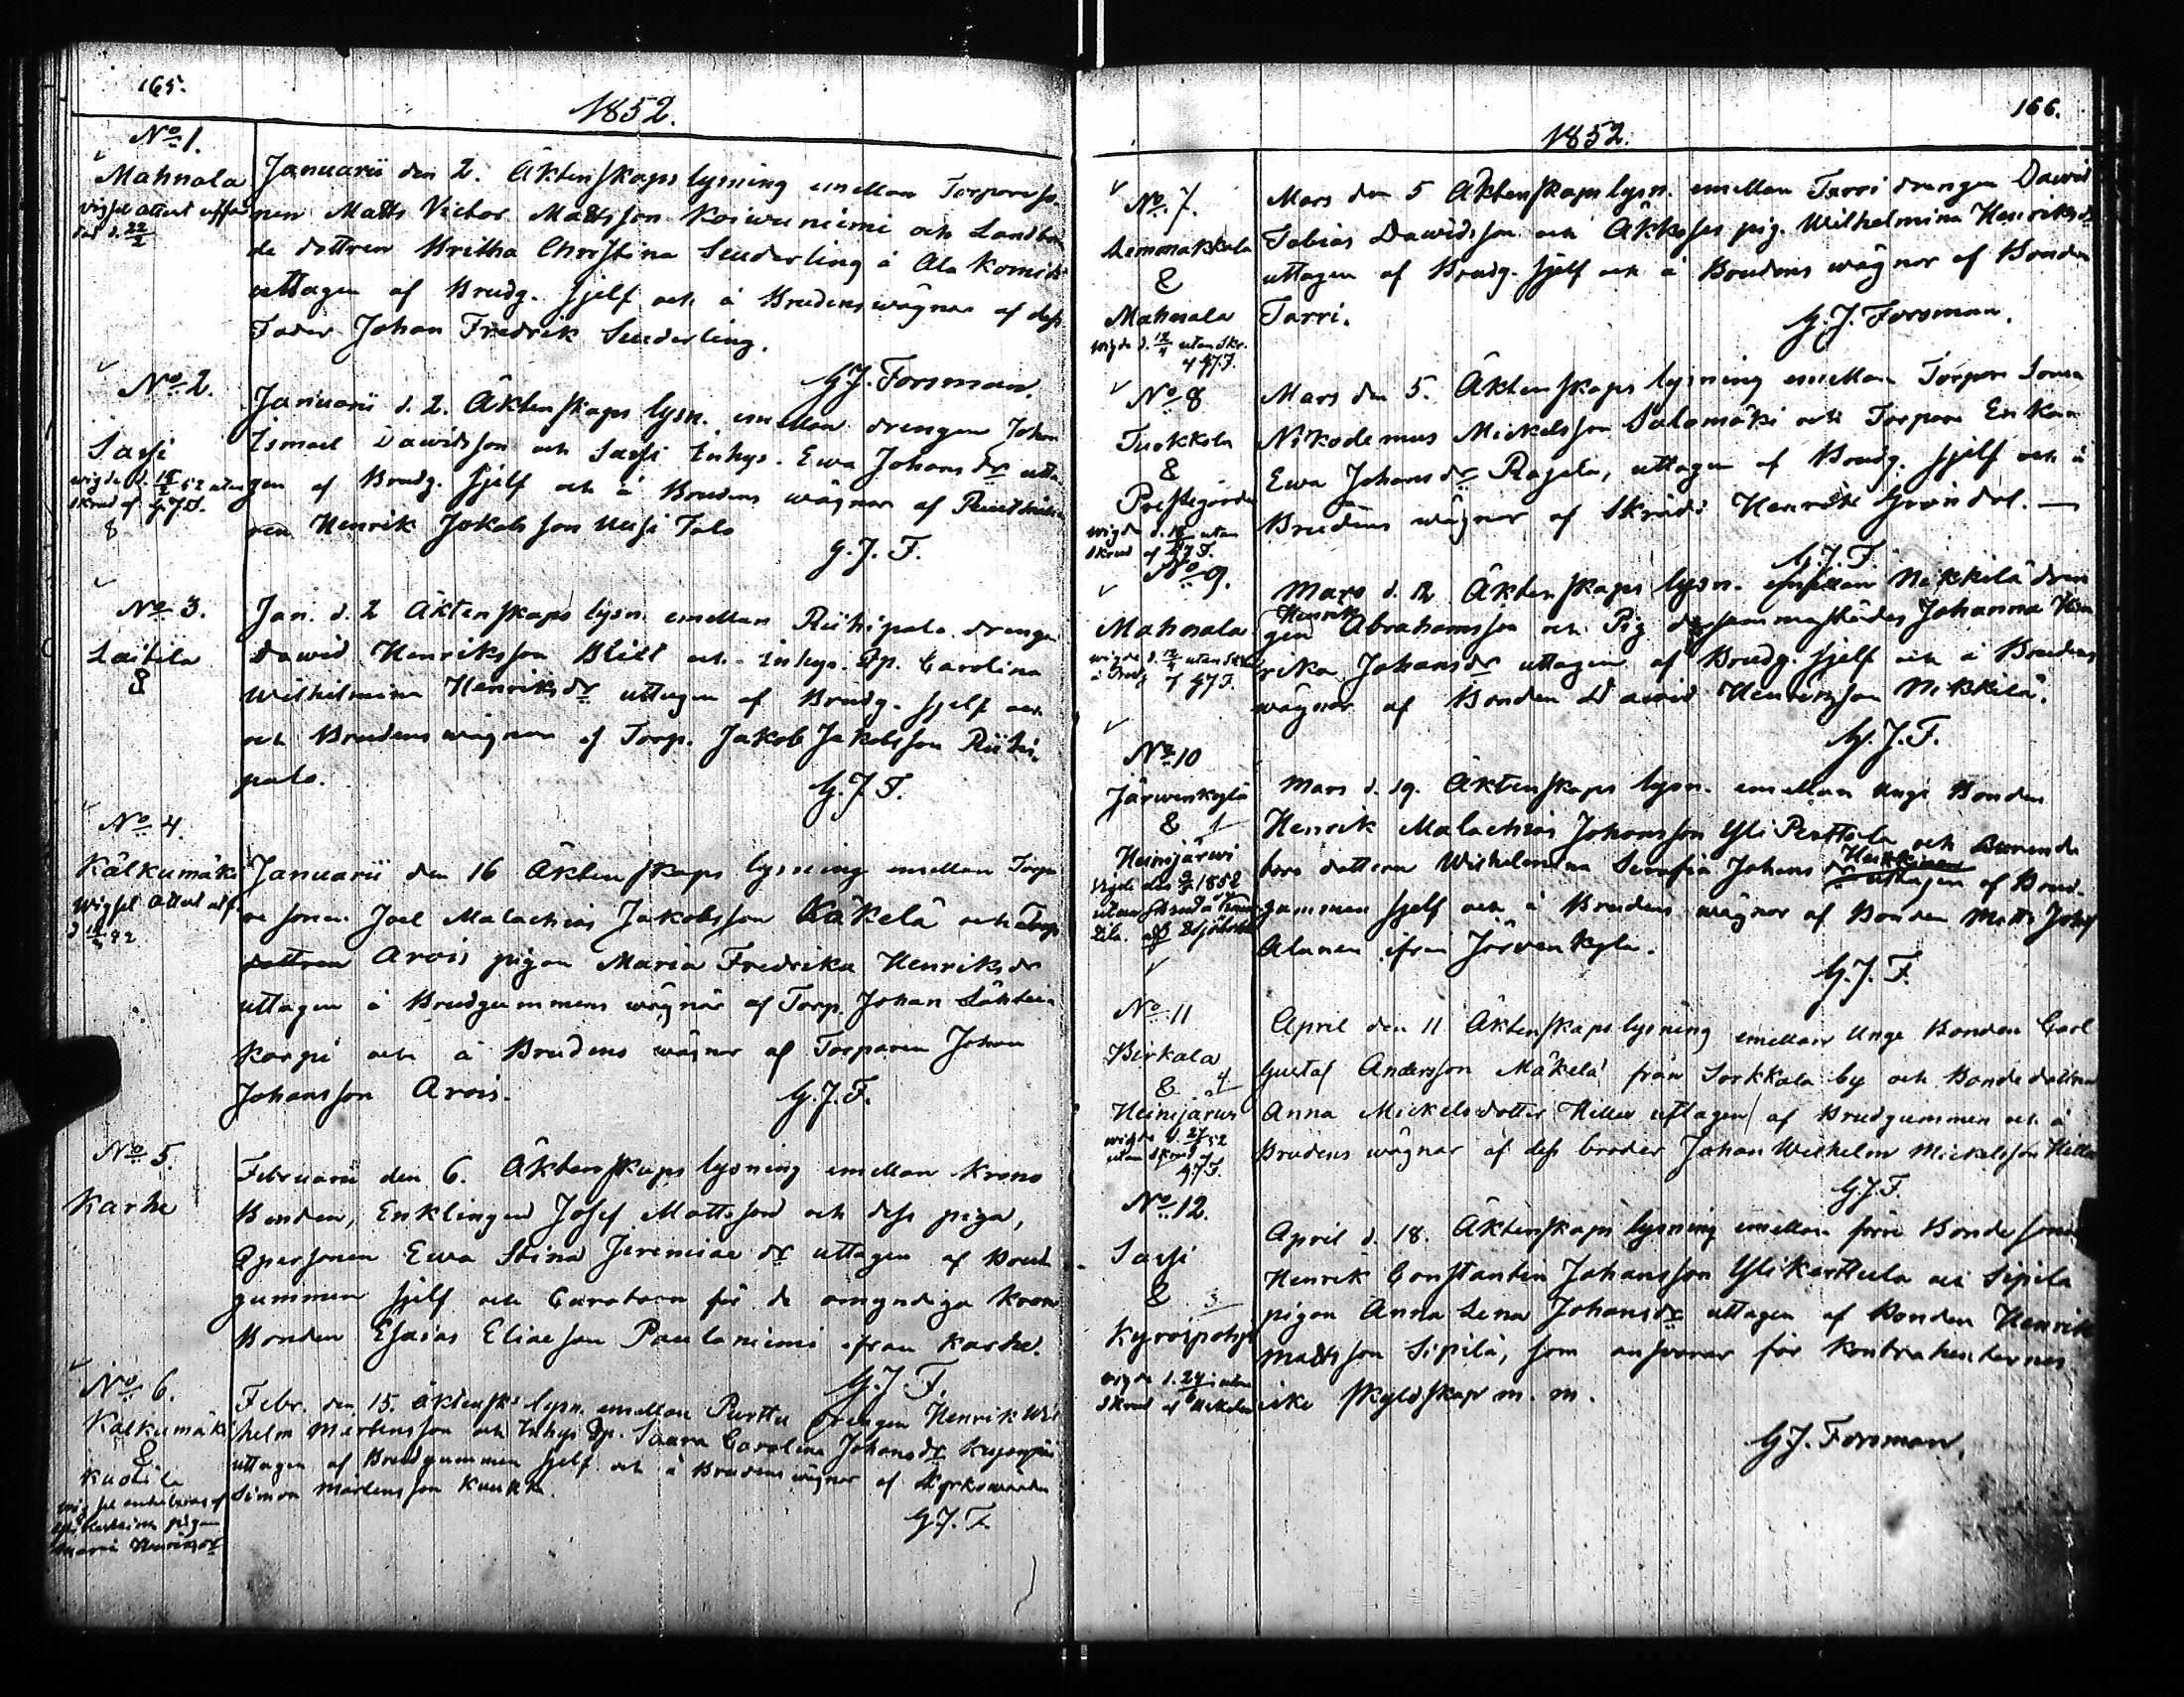 165.
1852.
No 1.
Mahnala
d. 22/2
Januarii den 2. Äktenskaps lysning emellan Torpareso
nen Matts Victor Mattsson Koivuniemi och Landbon
de dottren Britha Christina Suderling å Ala Komi
uttagen af Brudg. sjelf och å Brudens wägnar af dess
Fader Johan Fredrik Suderling.
G. J. Forsman.
No 2.
Sassi
wigde d. 52 utan
skrud af G. J. F.
&
Januarii d. 2. Äktenskaps lysn. emellan drengen Johan
Ismael Dawidsson och Sassi Inhys. Ewa Johansdr utta
gen af Brudg. sjelf och å Brudens wägnar af
ren Henrik Jakobsson Uusi Talo
G. J. F.
No 3.
Laitila
&
Jan. d. 2 Äktenskaps lysn. emellan Riihipalo drengen
Dawid Henriksson och Inhys. Qp. Carolina
Wilhelmina Henriksdr uttagen af Brudg. sjelf och
och Brudens wägnar af Torp. Jakob Jakobsson Riihi
palo.
G. J. F.
No 4.
Kälkumäki
wigsel attest
Januarii den 16 Äktenskaps lysning emellan Torpa
re sonen Joel Malachias Jakobsson Käkelä och Torp
dottren Arois pigan Maria Fredrika Henriksdr
uttagen å Brudgummens wägnar af Torp. Johan Lähteen
korpi och å Brudens wägnar af Torparen Johan
Johansson Arois.
G. J. F.
No 5.
Karhe
Februarii den 6. Äktenskaps lysning emellan Krono
Bonden, Enklingen Josef Mattsson och dess piga,
Qpersonen Ewa Stina Jeremiae dr uttagen af Brud
gummen sjelf och Curatorn för de omyndiga Krono
Bonden Esaias Eliaeson Paulaniemi ifrån Karhe.
G. J. F.
No 6.
Kälkumäki
&
Kuotila
pigan
Maria Henriksdr
Febr. den 15. Äktensks lysn. emellan Perttu drengen Henrik Wil
helm Mårtensson och Inhys Qp. Saara Carolina Johansdr
uttagen af Brudgummen sjelf och å Brudens wägnar af Kyrkowärden
Simon Mårtensson Kuukka.
G. J. F.
166.
1852.
No 7.
Lemmakkala
&
Mahnala
wigde d. 12/4 utan Skr.
af G. J. F.
Mars den 5 Äktenskaps lysn. emellan Tarri drengen Dawid
Tobias Dawidsson och Äkkses pig. Wilhelmina Henriksdr
uttagen af Brudg. sjelf och å Brudens wägnar af Bonden
Tarri.
G. J. Forsman.
No 8
Tuokkola
&
Prestegården
wigde d. utan
skrud af G. J. F.
Mars den 5. Äktenskaps lysning emellan Torpare Sonen
Nikodemus Mickelsson Salomäki och Torpare Enkan
Ewa Johansdr Rajala, uttagen af Brudg. sjelf och å
Brudens wägnar af Skräd. Henrik Gröndol.
G. J. F.
No 9.
Mahnala
wigde d. 12/4 utan Skr
af G. J. F.
Mars d. 12 Äktenskaps lysn. emellan Nikkilä dren
gen Henrik Abrahamsson och Pig dersammastädes Johanna Hen
rika Johansdr uttagen af Brudg. sjelf och å Brudens
wägnar af Bonden Dawid Henriksson Nikkilä.
G. J. F.
No 10
Järwenkylä
& 1
Heinijärwi
Vigde den 1852
utan skrud å
Mars d. 19. Äktenskaps lysn. emellan Unge Bonden
Henrik Malachias Johansson Yli Perttula och
bors dottern Wilhelmina Serafia Johans dr Heikkinen uttagen af Brud-
gummen sjelf och å Brudens wägnar af Bonden Matts Josef
Alanen ifrån Järvenkylä.
G. J. F.
No 11
Birkala
& 4
Heinijärwi
wigde d. 27/ 52
utan skrud af
G. J. F.
April den 11 Äktenskaps lysning emellan Unge Bonden Carl
Gustaf Andersson Mäkelä från Sorkkala by och Bondedottren
Anna Mickelsdotter Hiller uttagen af Brudgummen och å
Brudens wägnar af dess broder Johan Wilhelm Mickelsson Hiller
G. J. F.
No 12.
Sassi
& 3
Kyröspohja
wigde d. 24/6 utan
skrud af
April d. 18. Äktenskaps lysning emellan förre Bonde sonen
Henrik Constantin Johansson Yli Kerttula och Sipilä
pigan Anna Lena Johansdr uttagen af Bonden Henrik
Mattsson Sipilä, som ansvarar för kontrahenternes
icke skyldskap m. m.
G. J. Forsman.